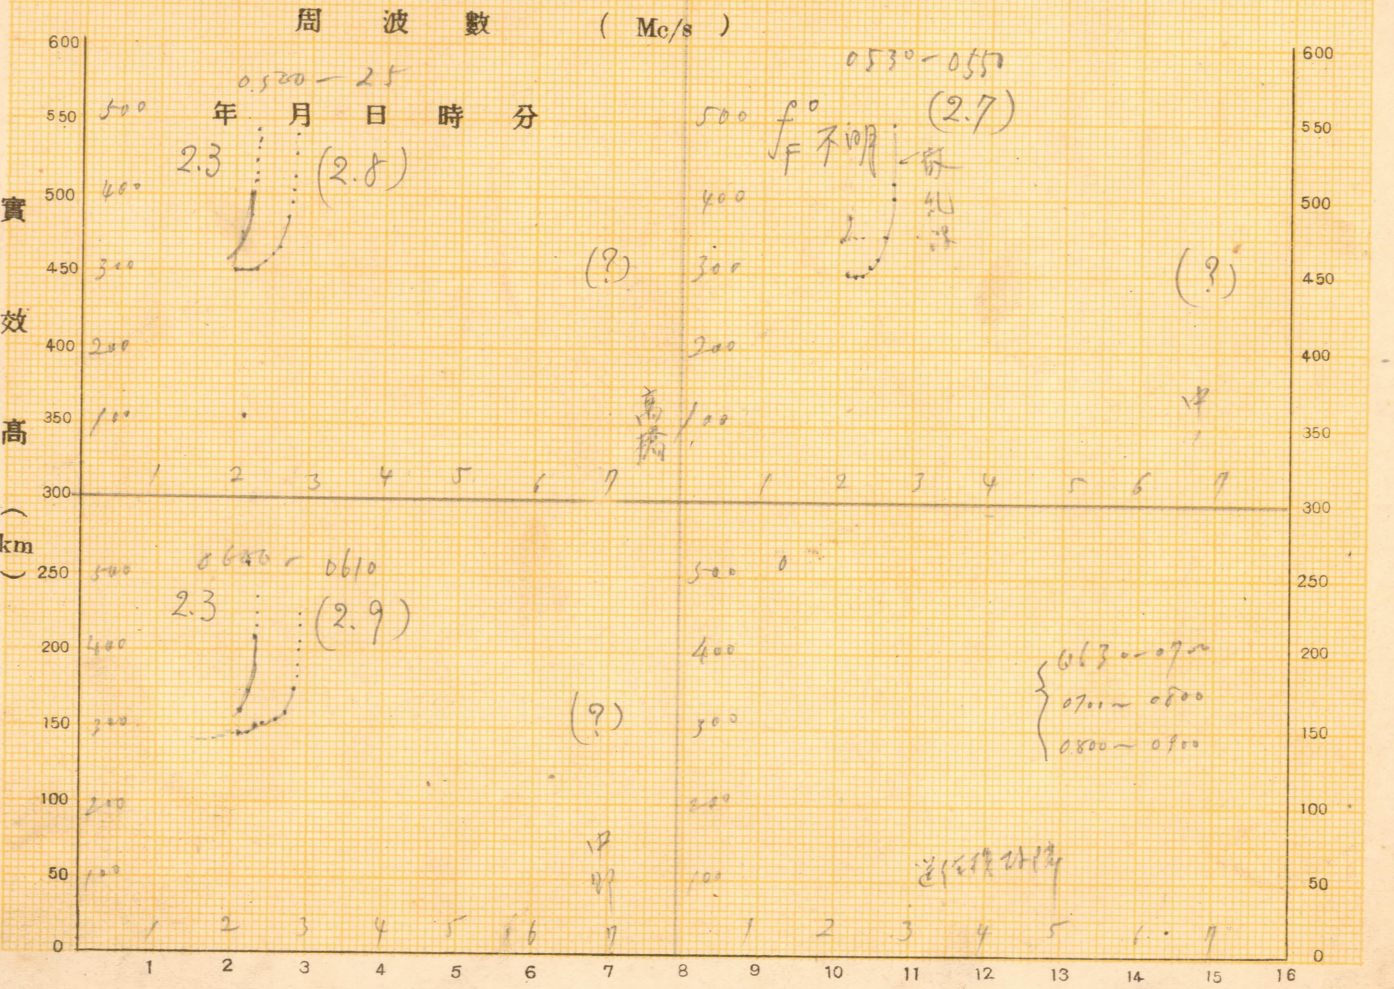 周波數 (Mc/s)
年 月 日 時 分
實效高 (km)
600
550
500
450
400
350
300
250
200
150
100
50
0
600
550
500
450
400
350
300
250
200
150
100
50
0
1 2 3 4 5 6 7 8 9 10 11 12 13 14 15 16
0500 - 25
2.3 (2.8)
500
400
300
200
100
(?)
高橋
1 2 3 4 5 6 7
0530 - 0550
(2.7)
f°F 不明
散乱
500
400
300
200
100
(?)
中
1 2 3 4 5 6 7
0600 - 0610
2.3 (2.9)
500
400
300
200
100
(?)
中
1 2 3 4 5 6 7
500
400
300
200
100
0700~ 0800
0800~ 0900
1 2 3 4 5 6 7